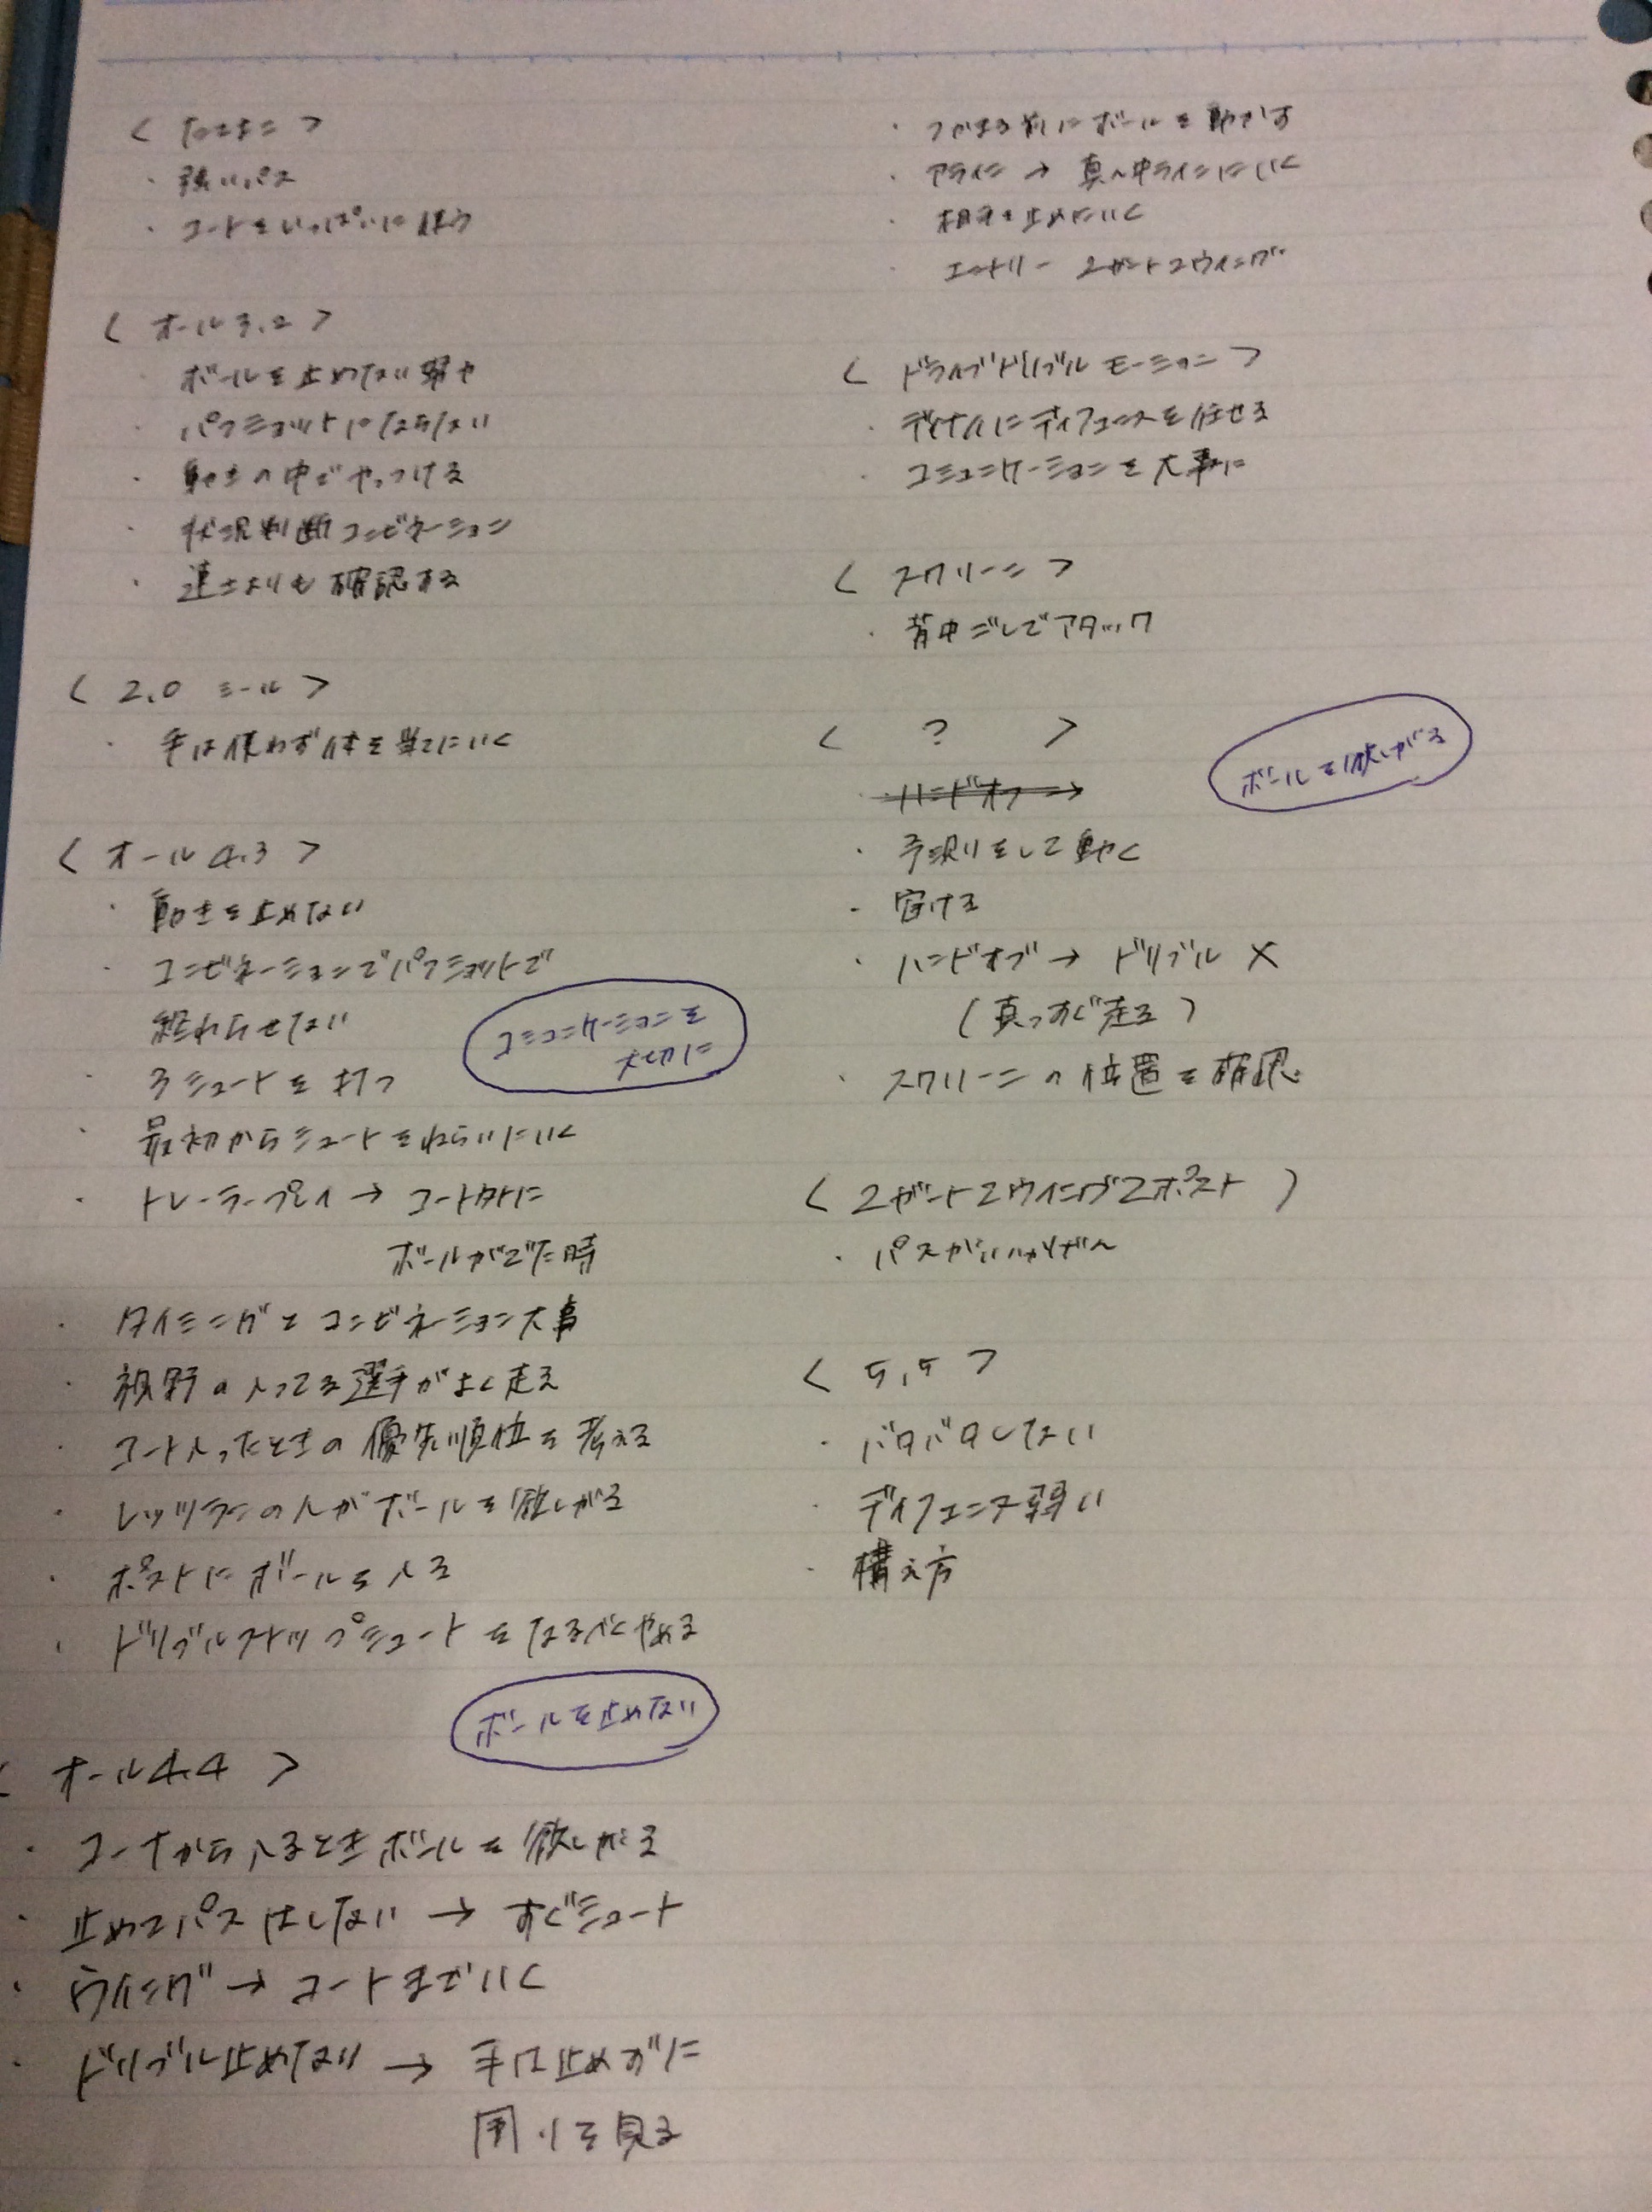 < たてよこ >
・強いパス
・コートをいっぱいに使う
< オール3.2 >
ボールを止めない
・パクショットにならない
・動きの中でやっつける
・状況判断コンビネーション
・速さよりも確認する
< 2.0 ミール >
・手は使わず体を当てにいく
< オール4.3 >
・動きを止めない
・コンビネーションでパクショットで
終わらせない
・3シュートを打つ
・最初からシュートをねらいにいく
・トレーラープレイ → コート外に
ボールがでた時
コミュニケーションを
大切に
・タイミングとコンビネーション大事
・視野の入ってる選手がよく走る
・コート入ったときの優先順位を考える
・レッツランの人がボールを欲しがる
・ポストにボールを入る
・ドリブルストップシュートをなるべくやめる
ボールを止めない
< オール4.4 >
・コーナから入るときボールを欲しがる
・止めてパスはしない → すぐシュート
・ウイング → コートまでいく
・ドリブル止めない → 手は止めずに
周りを見る
・つかまる前にボールを動かす
・アライン → 真ん中ラインにいく
・相手を止めにいく
・エントリー 2ガード2ウイング
< ドライブドリブルモーション >
・ディナイにディフェンスを任せる
・コミュニケーションを大事に
< スクリーン >
・背中ごしでアタック
< ? >
ボールを欲しがる
・ハンドオフ
・予測をして動く
・空ける
・ハンドオブ → ドリブル ×
(真っすぐ走る)
・スクリーンの位置を確認
< 2ガード2ウイング2ポスト )
・パスがいいかげん
< 5,5 >
・バタバタしない
・ディフェンス弱い
・構え方